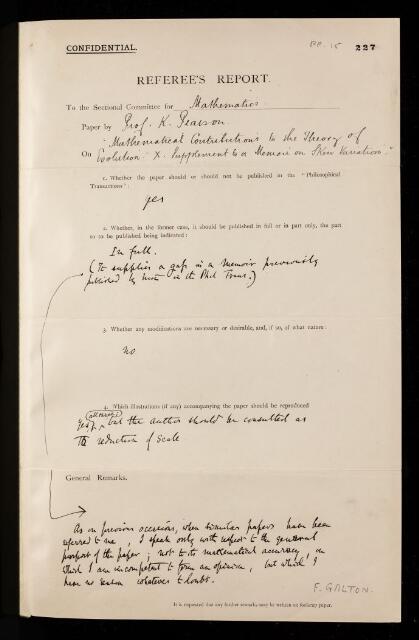 CONFIDENTIAL.
RR. 15
227
REFEREE'S REPORT.
To the Sectional Committee for Mathematics
Paper by Prof. K. Pearson
"Mathematical Contributions to the Theory of
On Evolution. X. Supplement to a Memoir on Skew Variation."
1. Whether the paper should or should not be published in the "Philosophical
Transactions":
yes
2. Whether, in the former case, it should be published in full or in part only, the part
so to be published being indicated:
In full.
(It supplies a gap in a memoir previously
published by him in the Phil Trans.)
3. Whether any modifications are necessary or desirable, and, if so, of what nature:
no
4. Which illustrations (if any) accompanying the paper should be reproduced
yes, but the author should be consulted as
to reduction of scale
General Remarks.
As on previous occasions, when similar papers have been
referred to me, I speak only with respect to the general
purport of the paper; not to its mathematical accuracy, on
which I am incompetent to form an opinion, but which I
have no reason whatever to doubt.
F. GALTON.
It is requested that any further remarks may be written on foolscap paper.